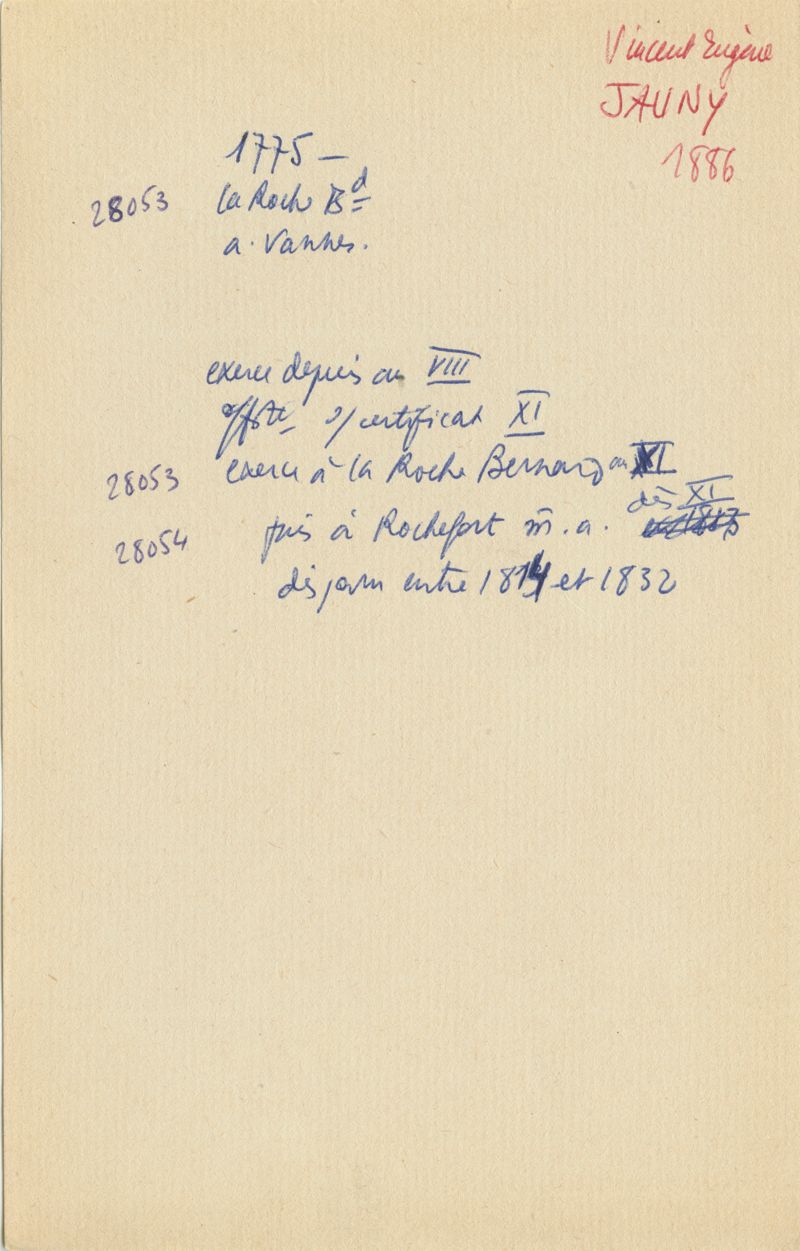 Vincent Eugène
JAUNY
1886
1775 –
28053 la Roche Bd
a. Vannes.
exerce depuis an VIII
s/ certificat XI
28053 exerce à la Roche Bernard an XI
dès XI
28054 puis à Rochefort m. a.
disparu entre 1814 et 1832